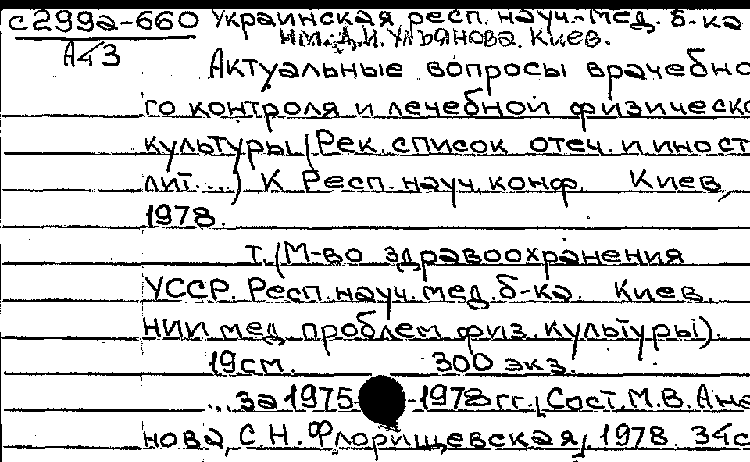 с299а-660 Украинская респ. науч.-мед. б-ка
А43 им. Д.И. Ульянова. Киев.
Актуальные вопросы врачебно
го контроля и лечебной физическо
культуры. (Рек. список отеч. и иност
лит. ...) К Респ. науч. конф. Киев,
1978.
т. (М-во здравоохранения
УССР. Респ. науч. мед. б-ка. Киев.
НИИ мед. проблем физ. культуры).
19см. 300 экз.
...за 1975-1978 гг., Сост. М.В. Ане
нова, С.Н. Флорищевская, 1978. 34с